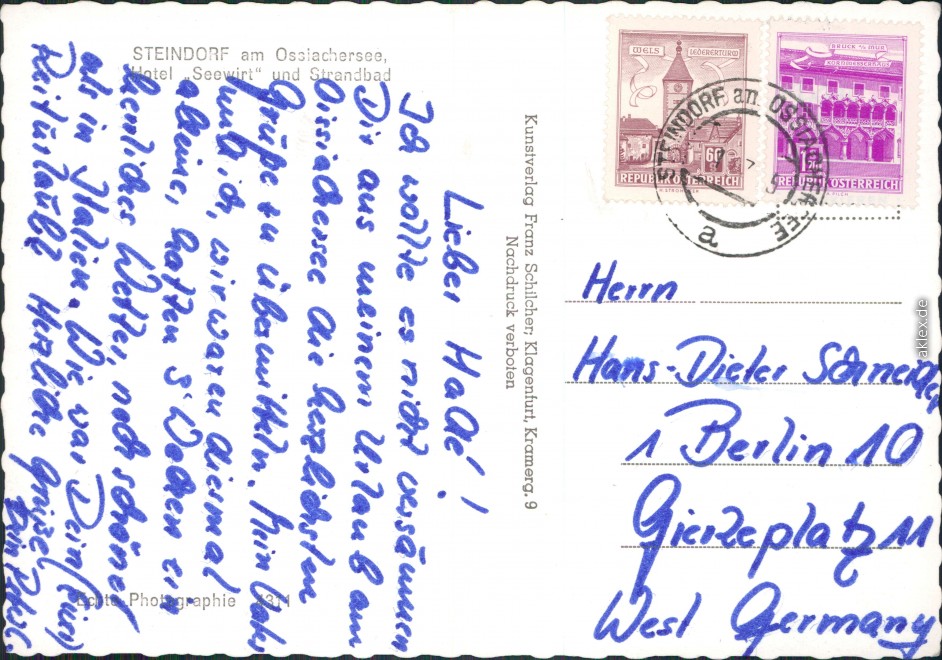 STEINDORF am Ossiachersee,
Hotel „Seewirt“ und Strandbad
Lieber Hade!
Ich wollte es nicht versäumen
Dir aus meinem Urlaub am
Ossiachersee die herzlichsten
Grüße zu übermitteln. Mein
und ich, wir waren diesmal
alleine, hatten 5 Wochen ein
herrliches Wetter, noch schöner
als in Italien. Wie war Dein
Herzliche Grüße
Dein
Echte Photographie 4311
Kunstverlag Franz Schilcher, Klagenfurt, Kramerg. 9
Nachdruck verboten
WELS LEDERERTURM
60
REPUBLIK ÖSTERREICH
BRUCK A/D MUR
KORNMESSERHAUS
1.20
REPUBLIK ÖSTERREICH
STEINDORF am OSSIACHERSEE
a
Herrn
Hans-Dieter Schneider
1 Berlin 10
Gierkeplatz 11
West Germany
aklex.de